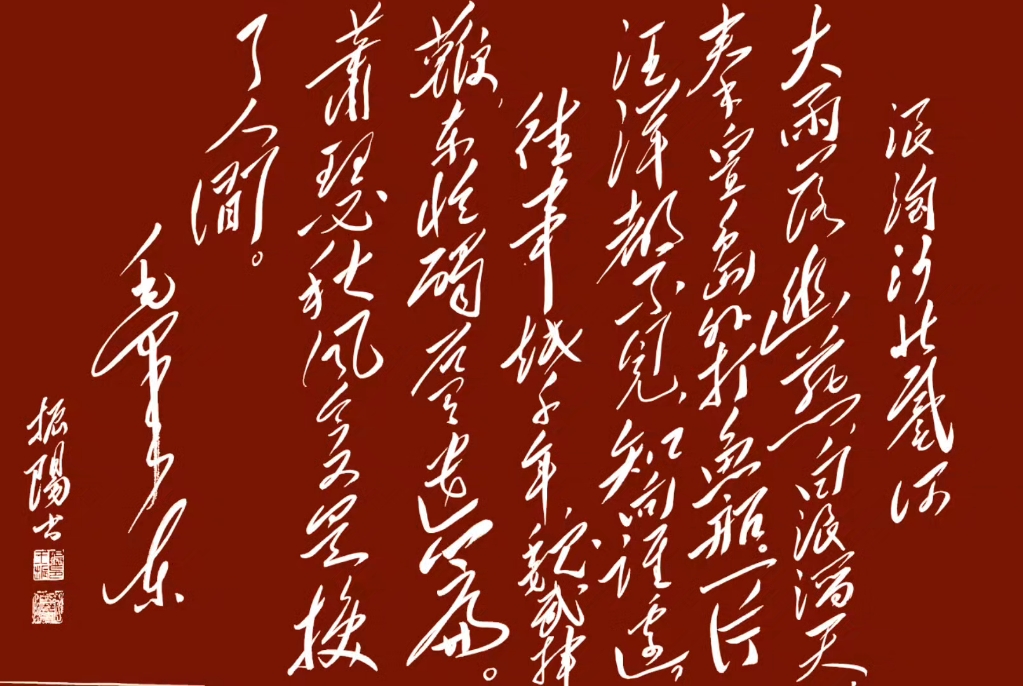 浪淘沙北戴河
大雨落幽燕,白浪滔天,
秦皇島外打魚船。一片
汪洋都不見,知向誰邊。
往事越千年,魏武揮
鞭,东临碣石有遺篇。
蕭瑟秋風今又是,換
了人間。
毛澤东
振陽书